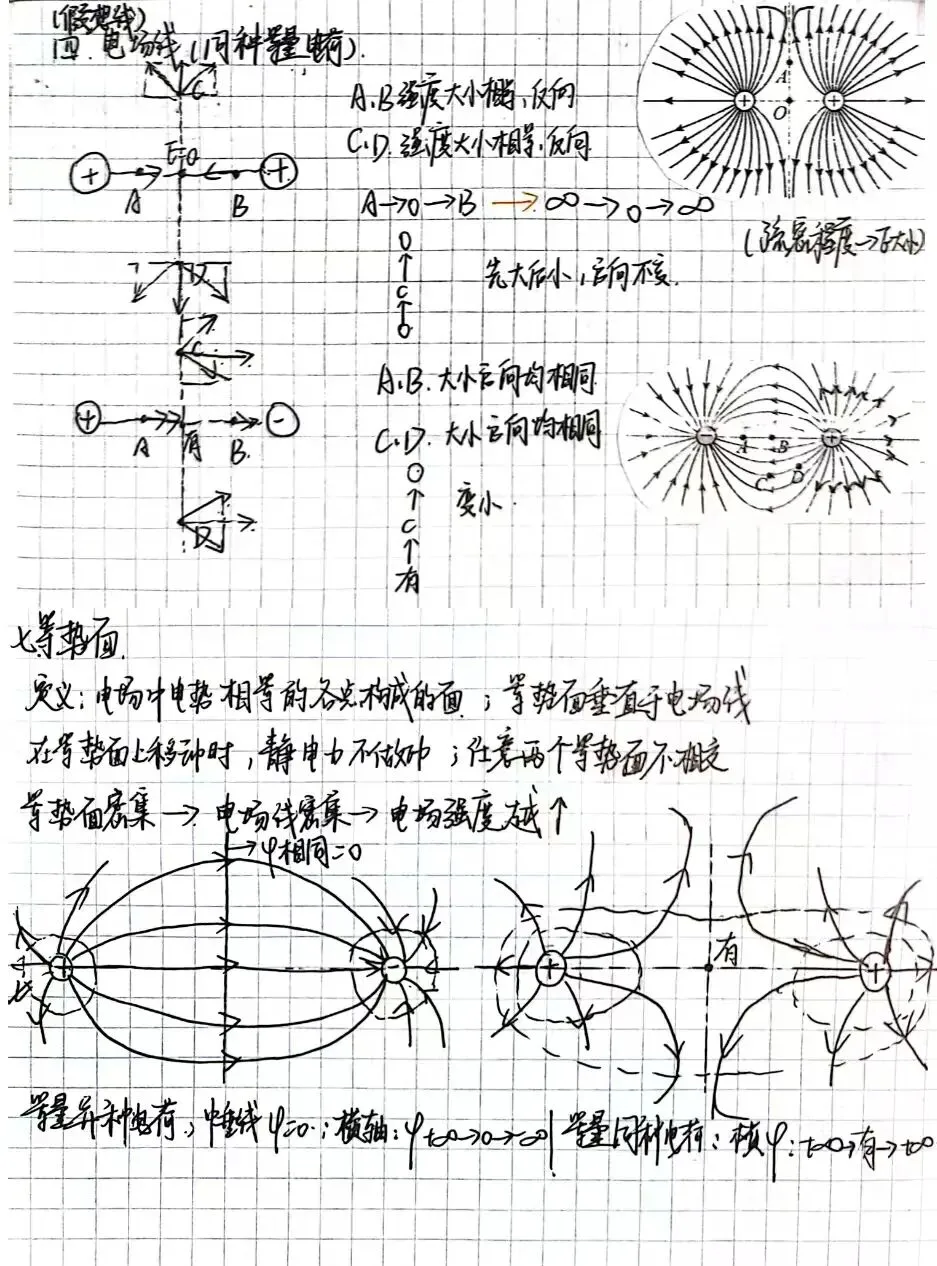 (假想线)
四. 电场线(同种等量电荷).
C
E=0
+ A B +
A、B强度大小相等,反向
C、D.强度大小相等.反向
A→O→B → ∞→0→∞
0
↑
C
↑
0
先大后小,方向不变.
D
A
O
+ +
(疏密程度→E大小)
C
+ A 有 B. -
D
A、B.大小方向均相同
C、D.大小方向均相同
0
↑
C
↑
有
变小.
- A B +
C D
七.等势面.
定义:电场中电势相等的各点构成的面;等势面垂直于电场线
在等势面上移动时,静电力不做功;任意两个等势面不相交
等势面密集→电场线密集→电场强度越↑
→φ相同=0
+ -
+ 有 +
等量异种电荷,中垂线φ=0;横轴:φ+∞→0→-∞
等量同种电荷:横φ:+∞→有→+∞